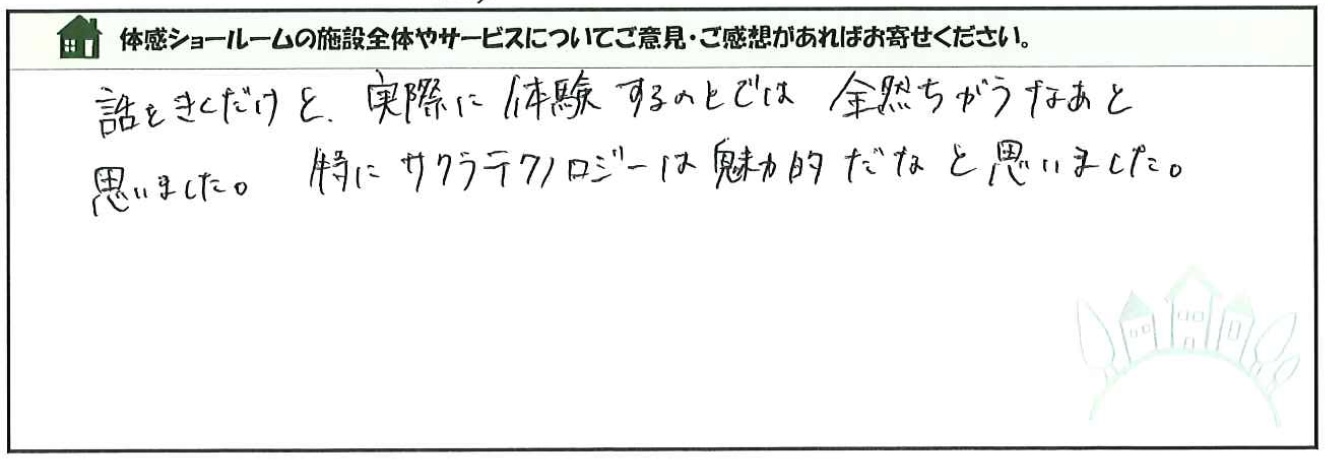 体感ショールームの施設全体やサービスについてご意見・ご感想があればお寄せください。
話をきくだけと、実際に体験するのとでは全然ちがうなあと
思いました。 特にサクラテクノロジーは魅力的だなと思いました。